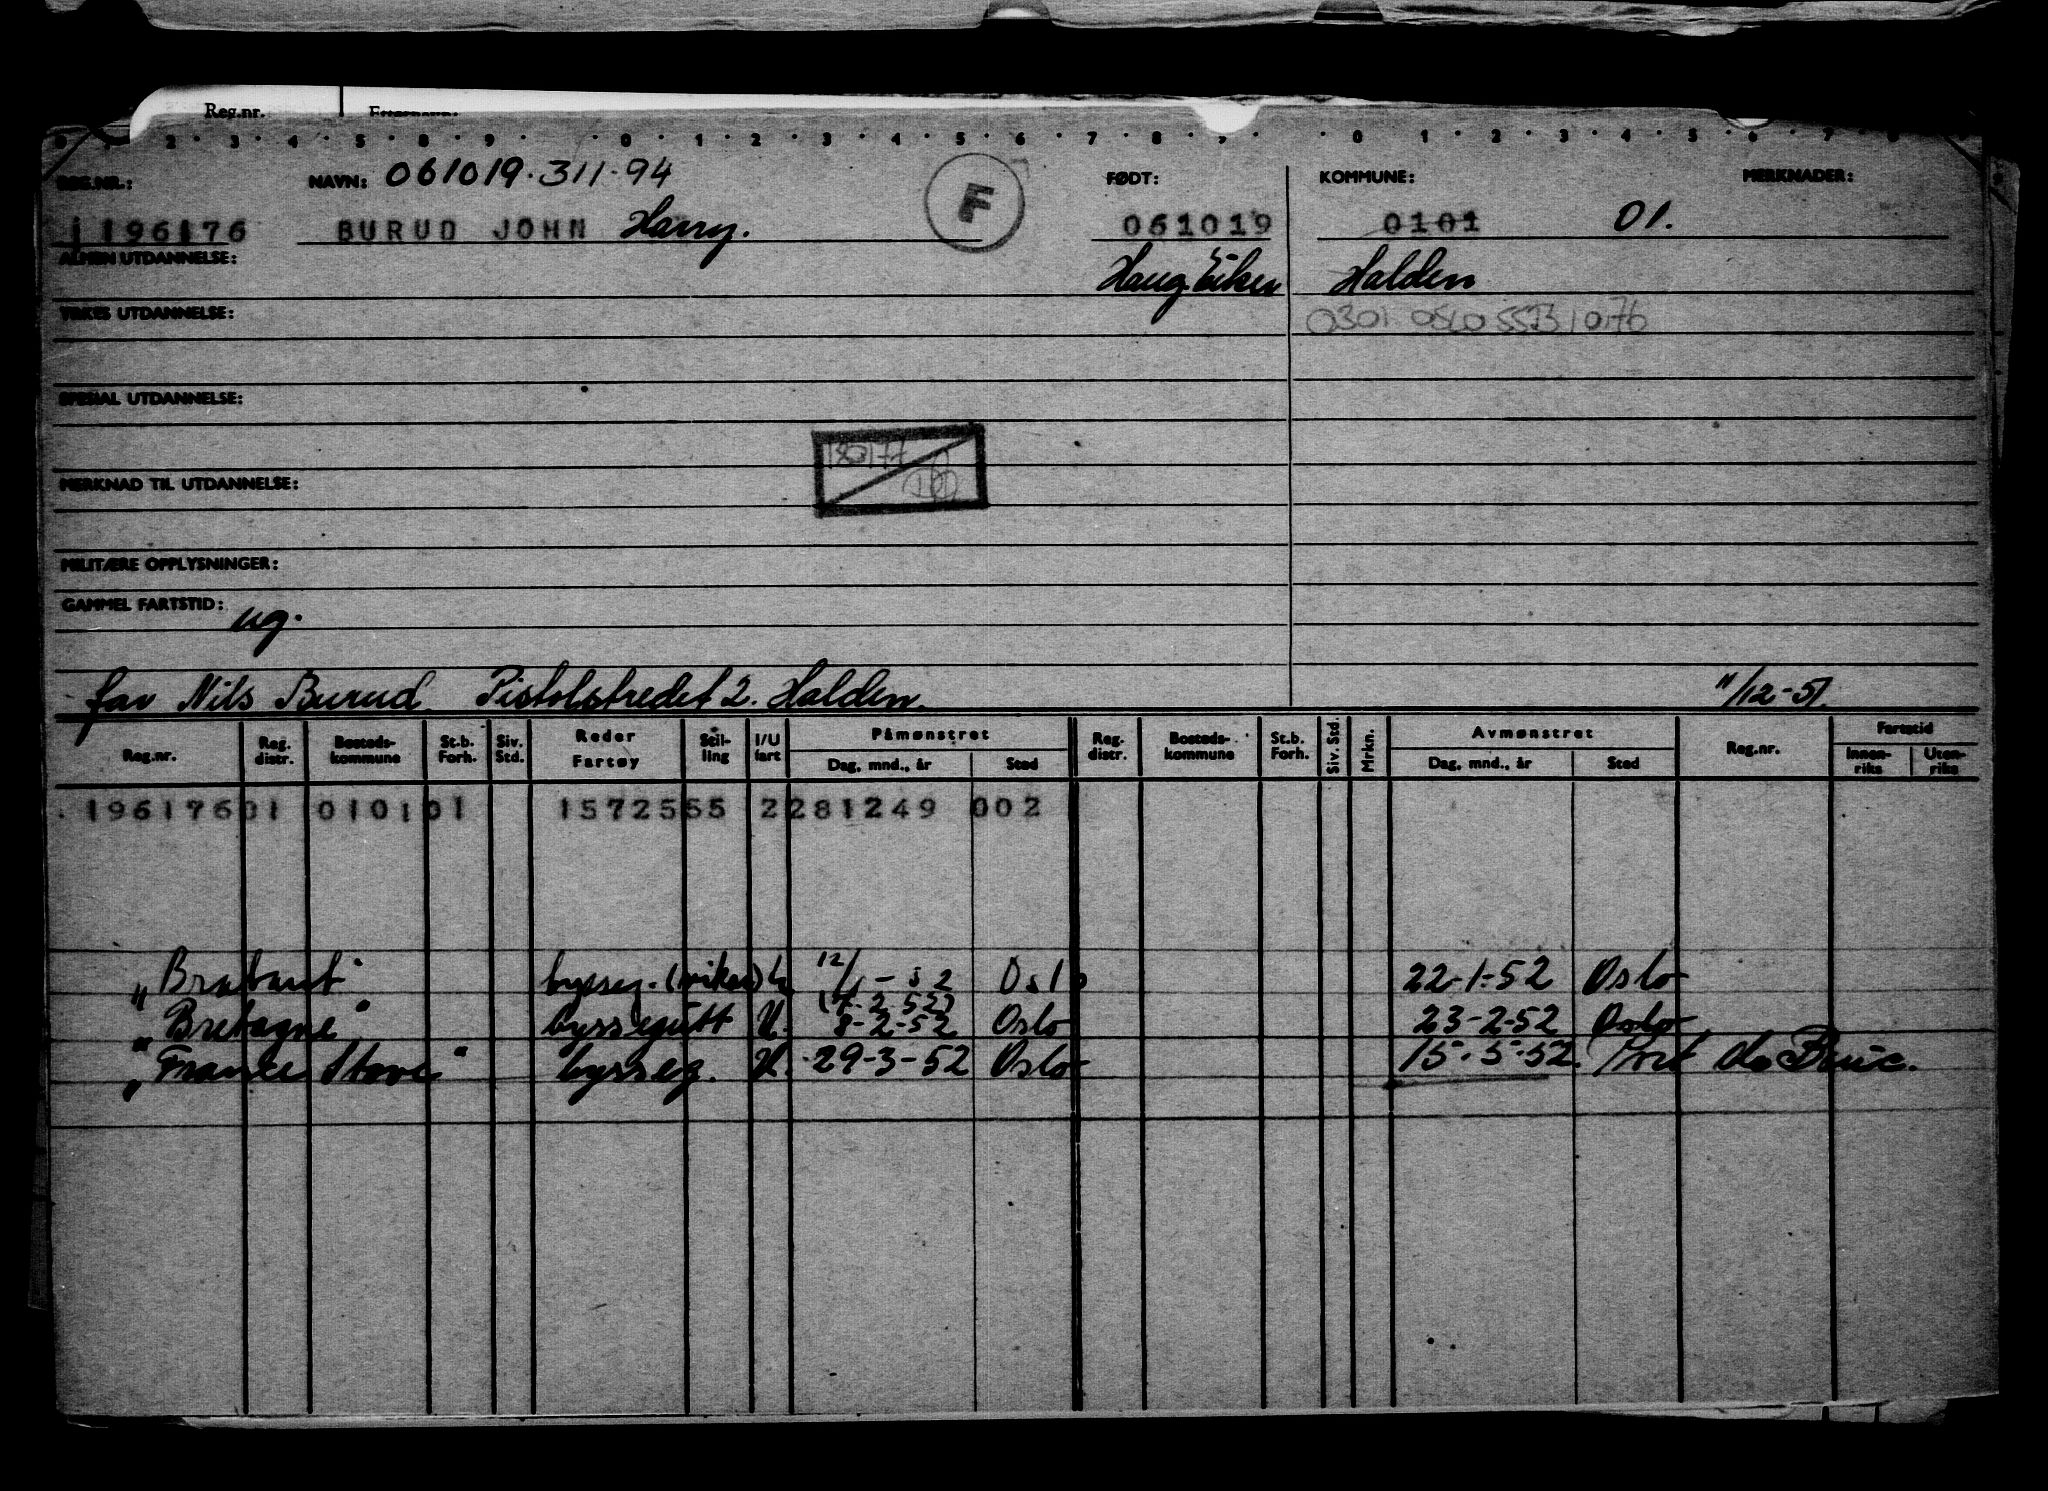 Reg.nr.
REG.NR.: NAVN: 061019.311.94 FØDT: KOMMUNE: MERKNADER:
F
196176 BURUD JOHN Harry. 061019 0101 01.
ALMEN UTDANNELSE: Haug. Eiker Halden
YRKES UTDANNELSE: 0301
SPESIAL UTDANNELSE:
180177
MERKNAD TIL UTDANNELSE:
MILITÆRE OPPLYSNINGER:
GAMMEL FARTSTID: ug.
far Nils Burud. Pistolstredet 2. Halden. 11/12-51.
Reg.nr. Reg. distr. Bosteds-kommune St.b. Forh. Siv. Std. Reder Fartøy Stil-ling I/U fart Påmønstret Dag, mnd., år Sted Reg. distr. Bosteds-kommune St.b. Forh. Siv. Std. Mrkn. Avmønstret Dag, mnd., år Sted Reg.nr. Fartstid Innen-riks Uten-riks
196176 01 0101 01 15725 55 2 281249 002
"Brabant" bysseg. 12/1-52 Oslo 22-1-52 Oslo
(7-2 52)
"Bretagne" byssegutt U. 8-2-52 Oslo 23-2-52 Oslo
"France Stove" bysseg. U. 29-3-52 Oslo 15-5-52. Port de Bouc.